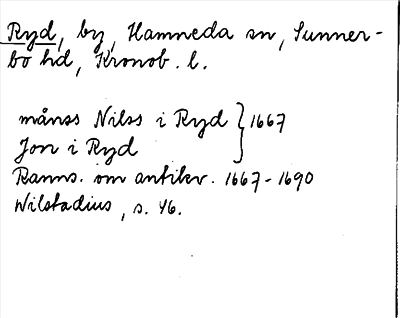 Ryd, by, Hamneda sn, Sunner-
bo hd, Kronob. l.
månss Nilss i Ryd } 1667
Jon i Ryd
Ranns. om antikv. 1667-1690
Wilstadius, s. 46.